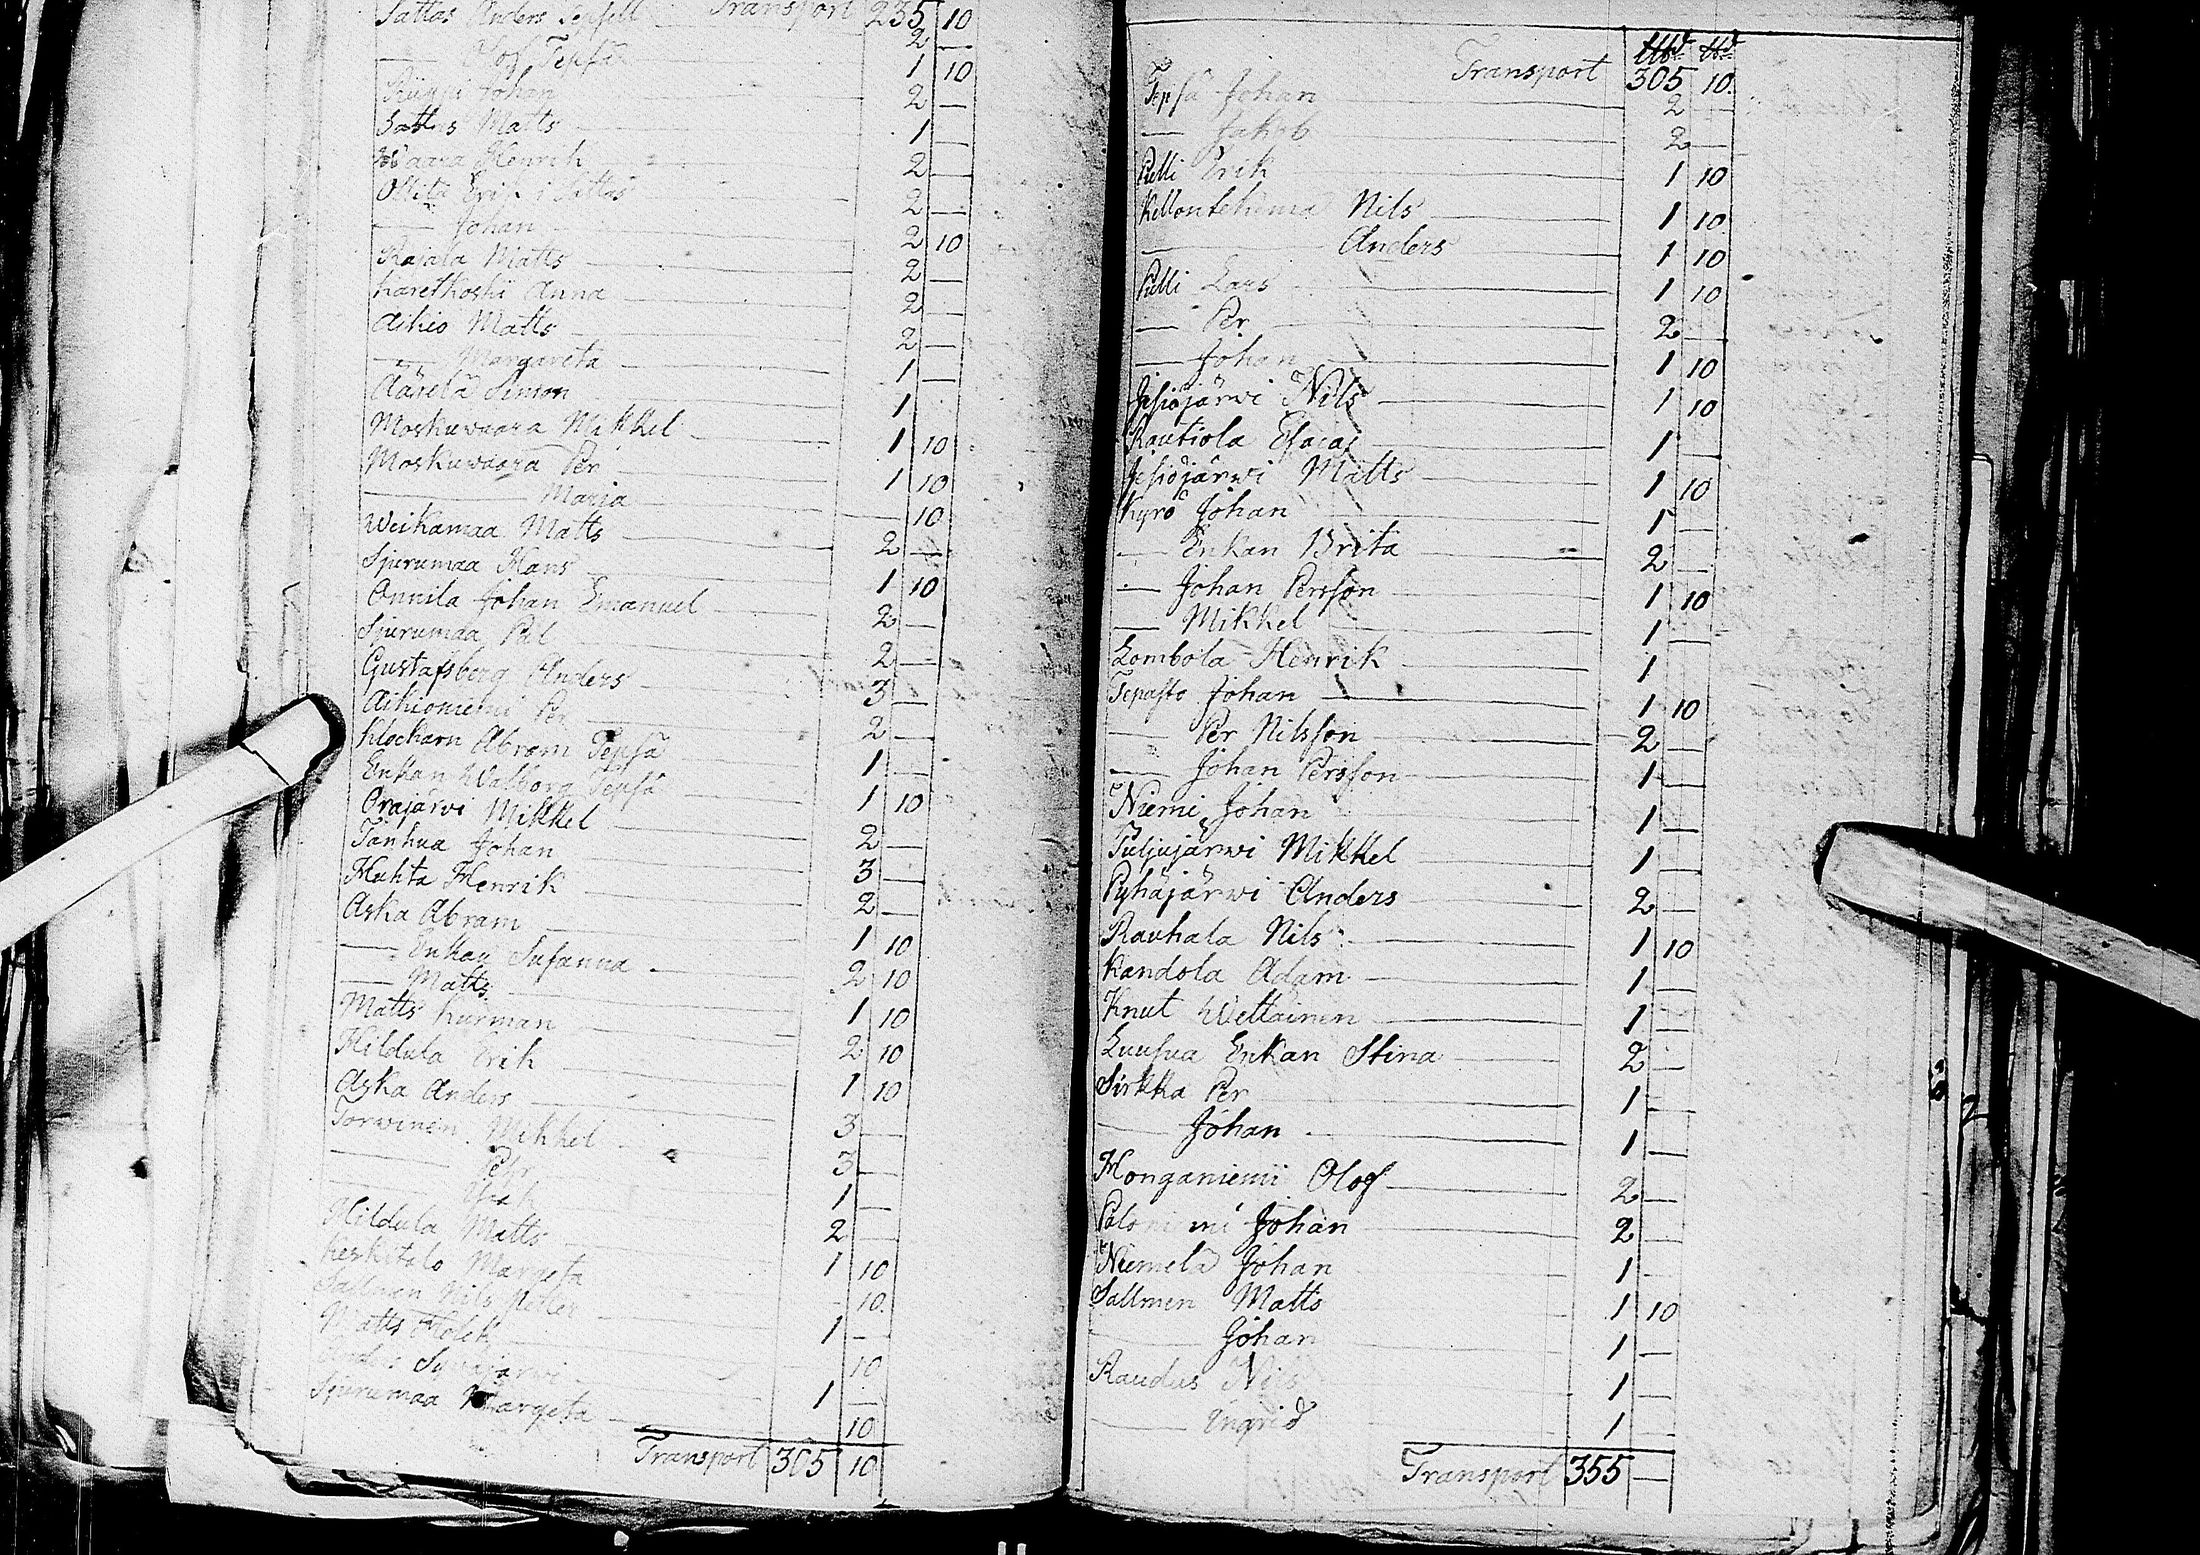 Transport 235 10
Sattas Anders Tepsell 2 —
— Olof Tepsa 1 10
Johan 2 —
Sattas Matts 1 —
Waara Henrik 2 —
Ollita Erik i Sattas 2 —
— Johan 2 10
Rajala Matts 2 —
Karethoski Anna 2 —
Aikio Matts 2 —
— Margareta 1 —
Aärelä Simon 1
Moskuwaara Mikkel 1 10
Moskuwaara Per 1 10
— Maria — 10
Weikamaa Matts 2 —
Sjurumaa Hans 1 10
Onnila Johan Emanuel 2 —
Sjurumaa Pål 2 —
Gustafsberg Anders 3 —
Aikioniemi Per 2 —
Klockarn Abram Tepsa 1 —
Enkan Walborg Tepsa 1 10
Orajärvi Mikkel 2 —
Tanhua Johan 3 —
Huhta Henrik 2 —
Aska Abram 1 10
— Enkan Susanna 2 10
— Matts 1 10
Matts Kurman 2 10
Hildula Erik 1 10
Aska Anders 3 —
Torwinen Mikkel 3 —
— Pehr 1 —
— 2 —
Hildula Matts 1 10
Keskitalo Margeta — 10
Sallmen Nils Petter 1 —
Matts Holck 10
Sywäjärwi 1 —
Sjurumaa Margeta 10
Transport 305 10
Transport 305 10
Tepsa Johan 2 —
— Jakob 2 —
Pulli Erik 1 10
Kellontekemä Nils 1 10
— Anders 1 10
Pulli Lars 1 10
— Per 2 —
— Johan 1 10
Jesiöjärwi Nils 1 10
Rautiola Esaias 1 —
Jesiöjärwi Matts 1 10
Kyrö Johan 1 —
— Enkan Brita 2 —
— Johan Persson 1 10
— Mikkel 1 —
Lombola Henrik 1
Tepasto Johan 1 10
— Per Nilsson 2 —
— Johan Persson 1 —
Niemi Johan 1 —
Tuljujärwi Mikkel 1 —
Pyhäjärwi Anders 2 —
Rauhala Nils 1 10
Kandola Adam 1 —
Knut Wettainen 1 —
Luusua Enkan Stina 2 —
Sirkka Per 1 —
— Johan 1 —
Honganiemi Olof 2 —
Johan 2 —
Niemelä Johan 1 —
Sallmen Matts 1 10
— Johan 1 —
Raudus Nils 1 —
— Ingrid 1 —
Transport 355 —